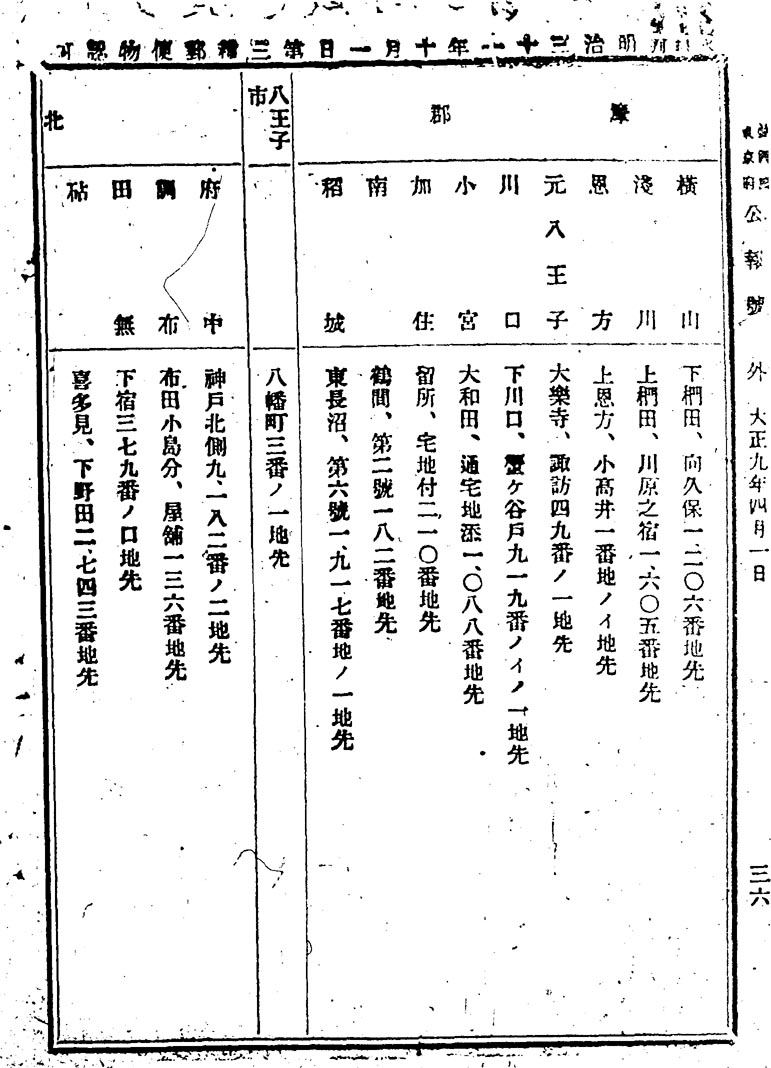 明治三十一年十月一日第三種郵便物認可
東京府公報號外 大正九年四月一日
三六
摩郡
横山 下椚田、向久保一、二〇六番地先
淺川 上椚田、川原之宿一、六〇五番地先
恩方 上恩方、小髙井一番地ノイ地先
元八王子 大樂寺、諏訪四九番ノ一地先
川口 下川口、蟹ケ谷戸九一九番ノイノ一地先
小宮 大和田、通宅地添一、〇八八番地先
加住 留所、宅地付二一〇番地先
南 鶴間、第二號一八二番地先
稻城 東長沼、第六號一、九一七番地ノ一地先
八王子市 八幡町三番ノ一地先
北
府中 神戸北側九、一八二番ノ二地先
調布 布田小島分、屋舖一三六番地先
田無 下宿三七九番ノ口地先
砧 喜多見、下野田二、七四三番地先